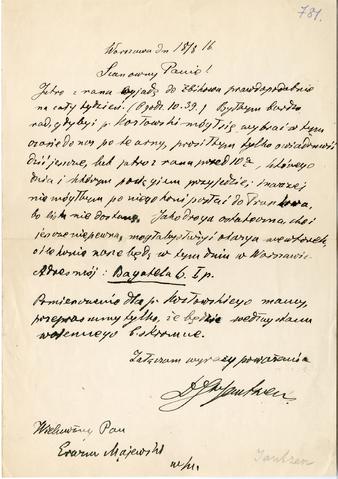 781.
Warszawa dn 18/8 16
Szanowny Panie!
Jutro z rana wyjadę do Żbikowa prawdopodobnie
na cały tydzień. (godz. 10.39.) Byłbym bardzo
rad, gdyby p. Kozłowski mógł się wybrać w tym
czasie do nas po te arny, prosiłbym tylko o wiadomość
dziś jeszcze, lub jutro z rana przed 10ą, którego
dnia i którym pociągiem przyjedzie, inaczej
nie mógłbym po niego koni posłać do
bo listu nie dostanę. Jako druga ostateczna, choć
jeszcze niepewna, mogłaby być
o ile końce nasze będą w tym dniu w Warszawie.
Adres mój: Bagatela 6. I p.
dla p. Kozłowskiego mamy,
przepraszamy tylko, że będzie według stanu
wojennego b. skromne.
Załączam wyrazy poważania
Wielmożny Pan
Erazm Majewski
w/m.
Jantzen